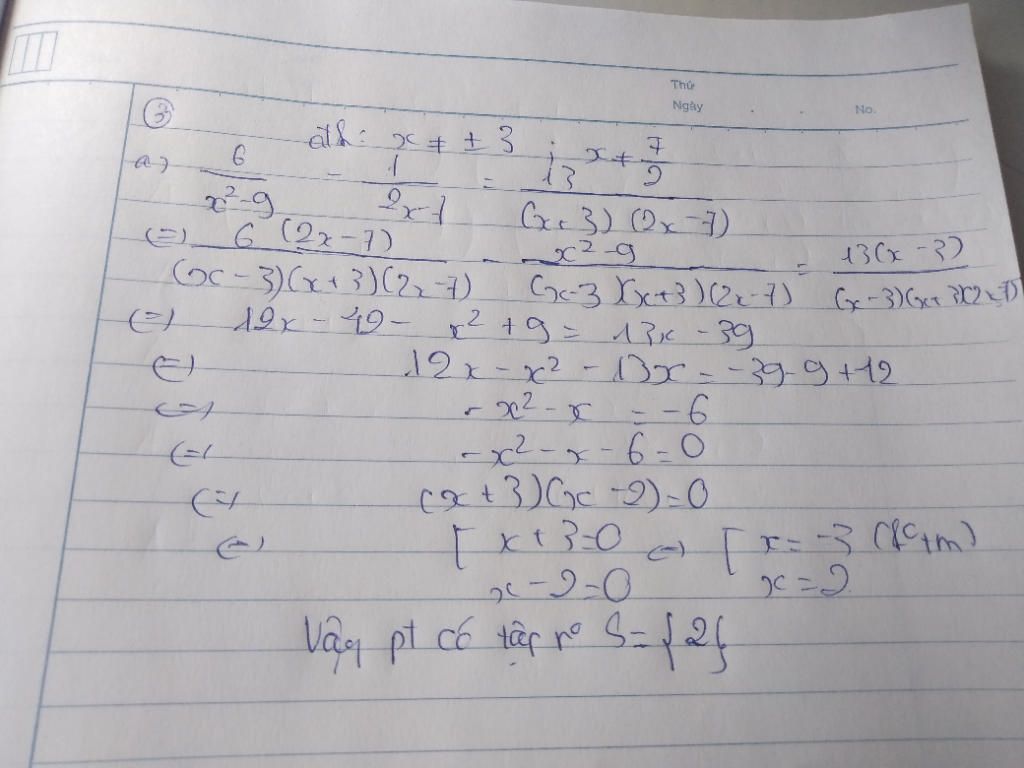 Thứ
Ngày . . No.
③
đk: x ≠ ± 3 ; x ≠ 7/2
a) 6/(x²-9) - 1/(2x-1) = 13/((x+3)(2x-7))
(=) 6(2x-7)/((x-3)(x+3)(2x-7)) - (x²-9)/((x-3)(x+3)(2x-7)) = 13(x-3)/((x-3)(x+3)(2x-7))
(=) 12x - 42 - x² + 9 = 13x - 39
(=) 12x - x² - 13x = -39-9+42
(=) -x² - x = -6
(=) -x² - x - 6 = 0
(=) (x+3)(x-2)=0
(=) [ x+3=0 (=) [ x = -3 (kᶜtm)
x-2=0 x = 2
Vậy pt có tập nº S = {2}